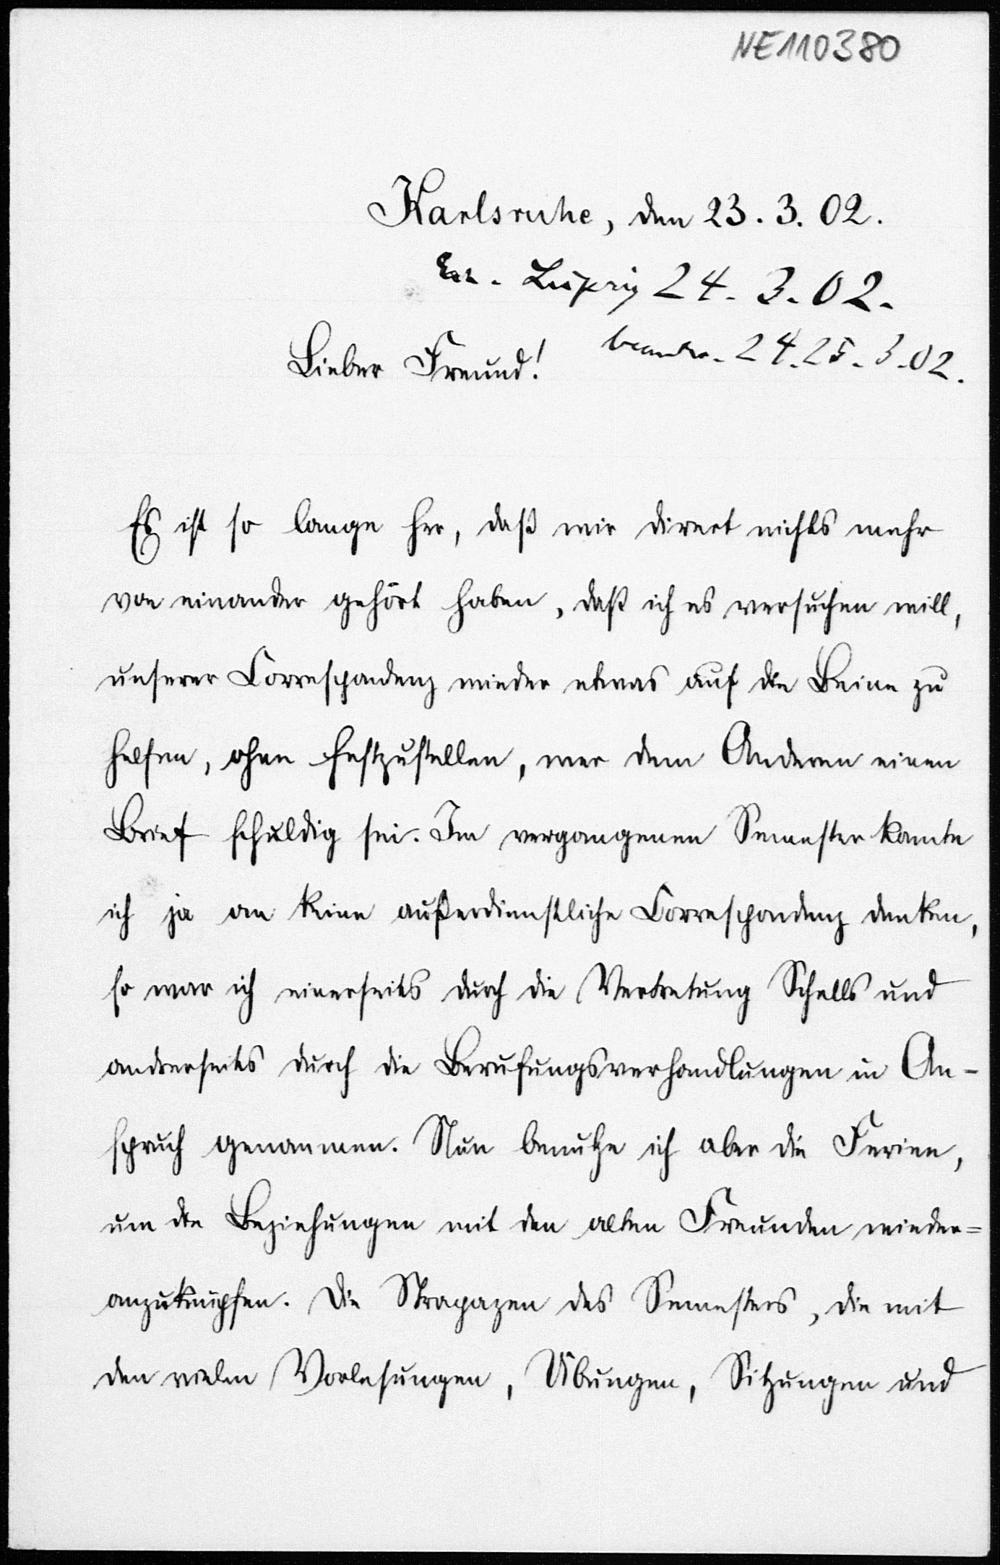 NE110380
Karlsruhe, den 23. 3. 02.
Er. Leipzig 24. 3. 02.
Lieber Freund!
beantw. 24. 25. 3. 02.
Es ist so lange her, daß wir direct nichts mehr
von einander gehört haben, daß ich es versuchen will,
unserer Correspondenz wieder etwas auf die Beine zu
helfen, ohne festzustellen, wer dem Anderen einen
Brief schuldig sei. Im vergangenen Semester konnte
ich ja an keine außerdienstliche Correspondenz denken,
so war ich einerseits durch die Vertretung Schells und
andrerseits durch die Berufungsverhandlungen in An-
spruch genommen. Nun benutze ich aber die Ferien,
um die Beziehungen mit den alten Freunden wieder=
anzuknüpfen. Die Strapazen des Semesters, die mit
den vielen Vorlesungen, Übungen, Sitzungen und